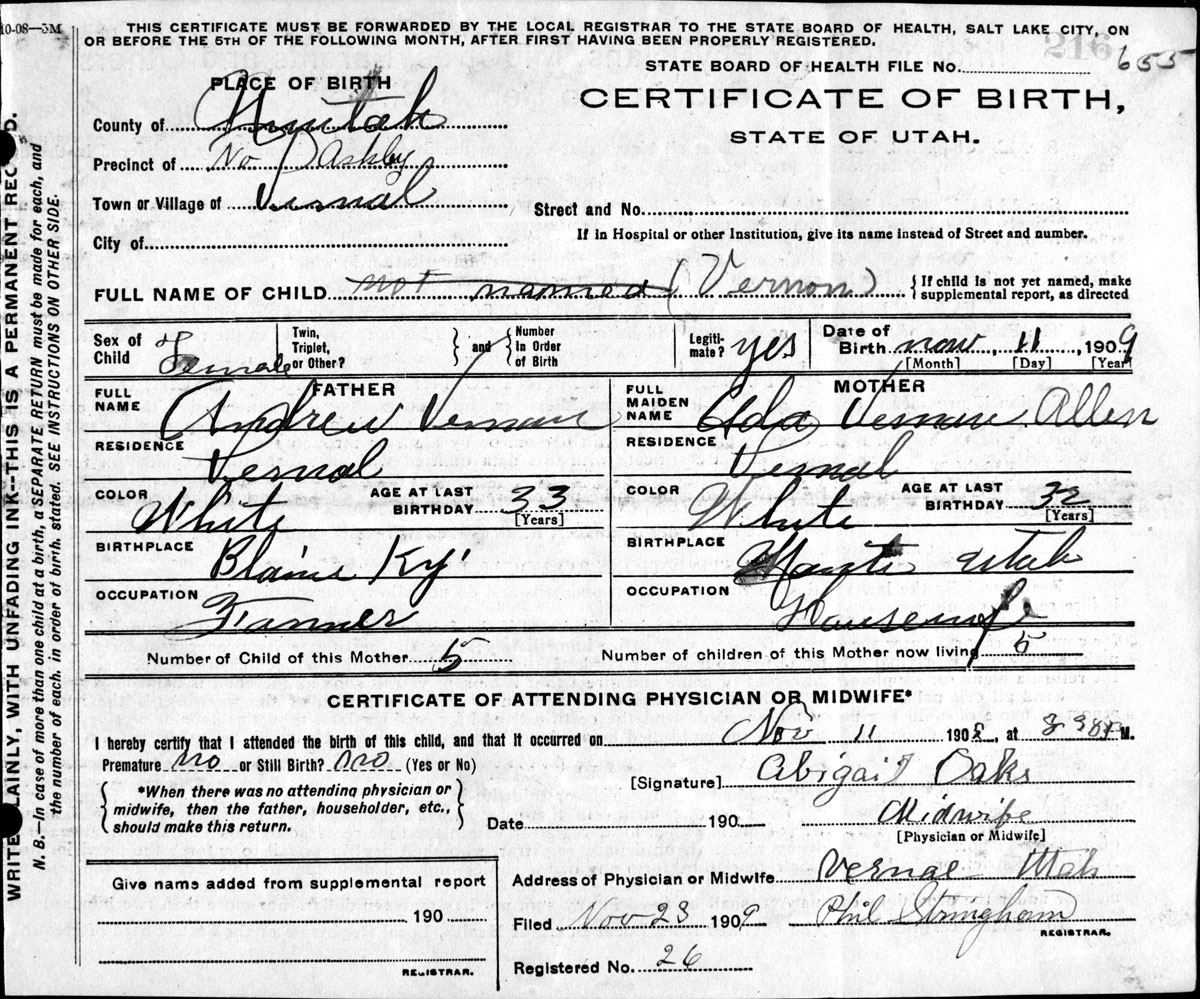 10-08—5M
THIS CERTIFICATE MUST BE FORWARDED BY THE LOCAL REGISTRAR TO THE STATE BOARD OF HEALTH, SALT LAKE CITY, ON
OR BEFORE THE 5TH OF THE FOLLOWING MONTH, AFTER FIRST HAVING BEEN PROPERLY REGISTERED.
216 655
STATE BOARD OF HEALTH FILE No.
PLACE OF BIRTH
CERTIFICATE OF BIRTH,
STATE OF UTAH.
County of Uintah
Precinct of No Ashby
Town or Village of Vernal
Street and No.
If in Hospital or other Institution, give its name instead of Street and number.
City of
FULL NAME OF CHILD not named (Vernon) {If child is not yet named, make
supplemental report, as directed
Sex of Child Female
Twin, Triplet, or Other? } and { Number In Order of Birth
Legiti-mate? yes
Date of Birth nov, 11, 1909
[Month] [Day] [Year]
FATHER
FULL NAME Andrew Vernon
RESIDENCE Vernal
COLOR White AGE AT LAST BIRTHDAY 33
[Years]
BIRTHPLACE Blaine Ky
OCCUPATION Farmer
MOTHER
FULL MAIDEN NAME Ada Vernon Allen
RESIDENCE Vernal
COLOR White AGE AT LAST BIRTHDAY 32
[Years]
BIRTHPLACE Utah
OCCUPATION Housewife
Number of Child of this Mother 5 Number of children of this Mother now living 5
CERTIFICATE OF ATTENDING PHYSICIAN OR MIDWIFE*
I hereby certify that I attended the birth of this child, and that it occurred on Nov 11 190 , at M.
Premature no or Still Birth? no (Yes or No)
[Signature] Abigail Oaks
{*When there was no attending physician or
midwife, then the father, householder, etc.,
should make this return.}
Date 190 Midwife
[Physician or Midwife]
Give name added from supplemental report
190
REGISTRAR.
Address of Physician or Midwife Vernal Utah
Filed Nov 23 1909 Phil Stringham
REGISTRAR.
Registered No. 26
WRITE PLAINLY, WITH UNFADING INK--THIS IS A PERMANENT RECORD.
N. B.—In case of more than one child at a birth, a SEPARATE RETURN must be made for each, and
the number of each, in order of birth, stated. SEE INSTRUCTIONS ON OTHER SIDE.